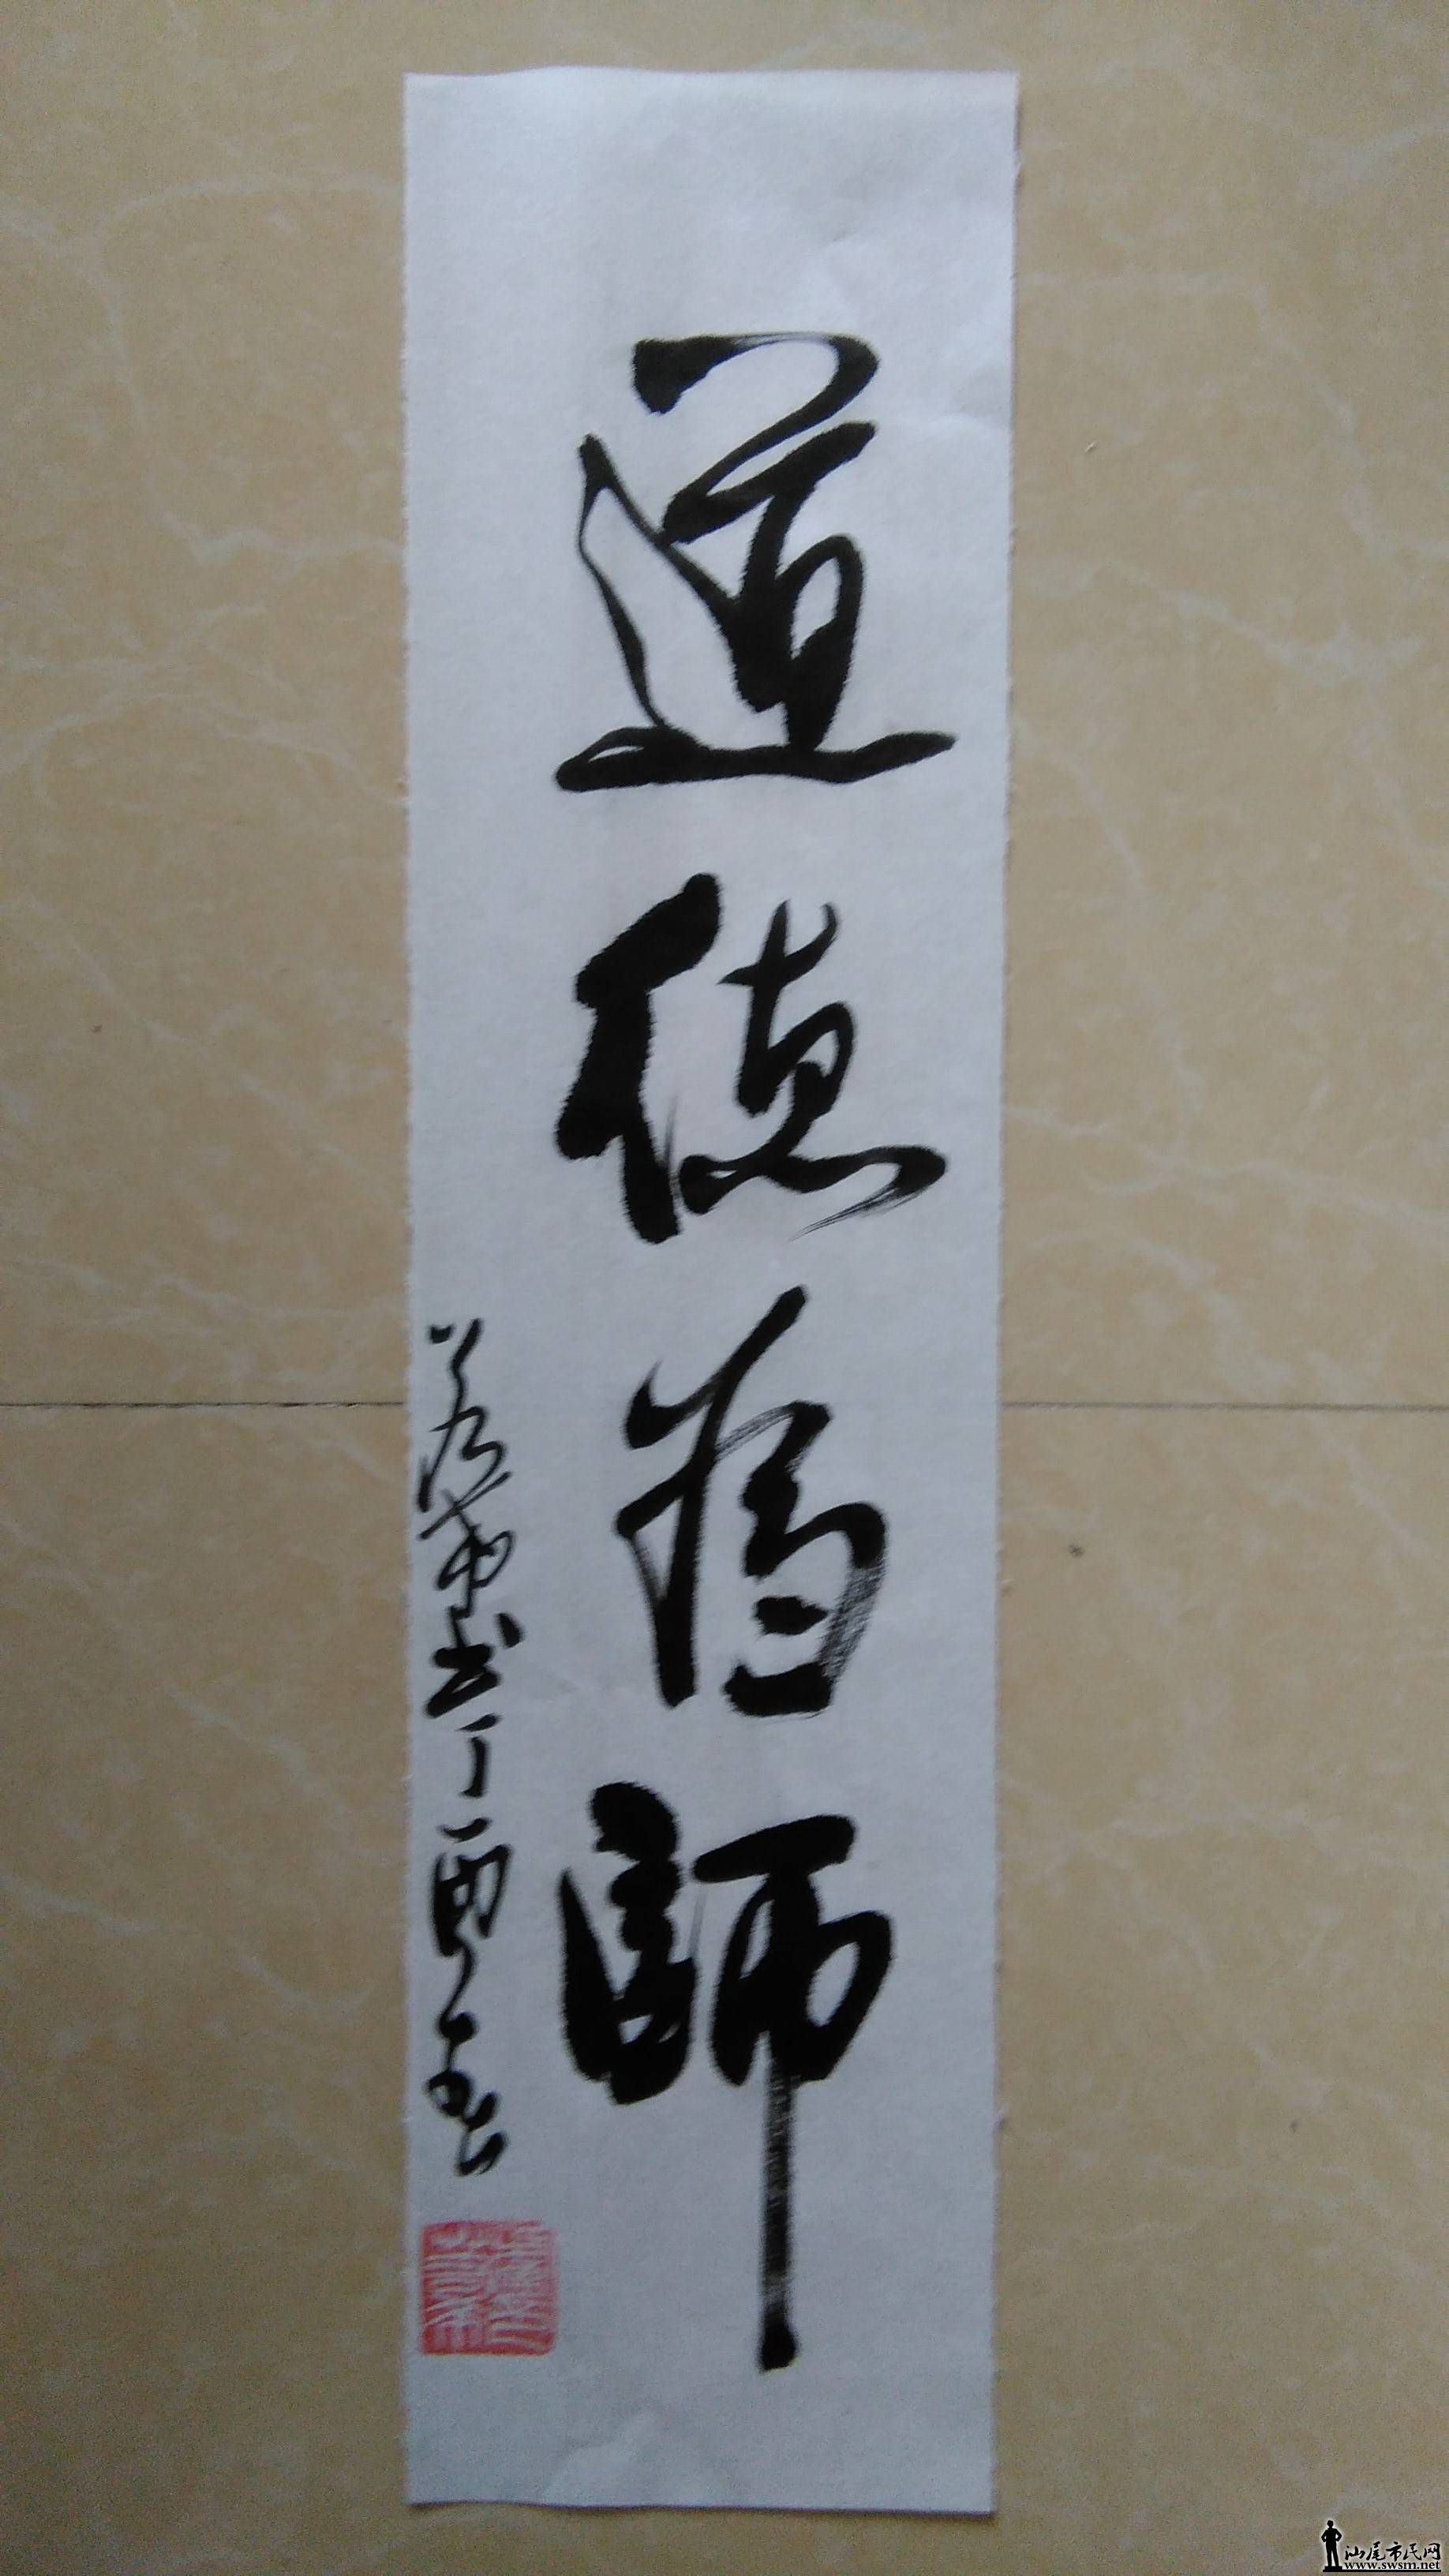 道德為師
书丁酉春
汕尾市民网
www.swsm.net